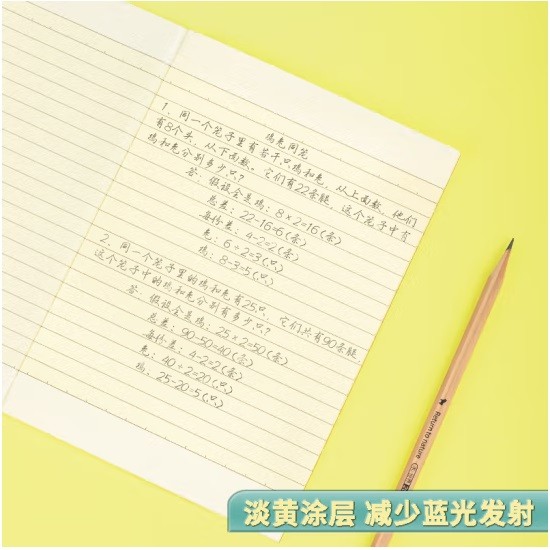 鸡兔同笼
1、同一个笼子里有若干只鸡和兔，从上面数，他们
有8个头，从下面数，它们有22条腿，这个笼子中有
鸡和兔分别多少只？
答：假设全是鸡：8×2=16(条)
总差：22-16=6(条)
每份差：4-2=2(条)
兔：6÷2=3(只)
鸡：8-3=5(只)
2、同一个笼子里的鸡和兔有25只，它们共有90条腿，
这个笼子中的鸡和兔分别有多少只？
答：假设全是鸡：25×2=50(条)
总差：90-50=40(条)
每份差：4-2=2(条)
兔：40÷2=20(只)
鸡：25-20=5(只)
Return to nature
淡黄涂层 减少蓝光发射